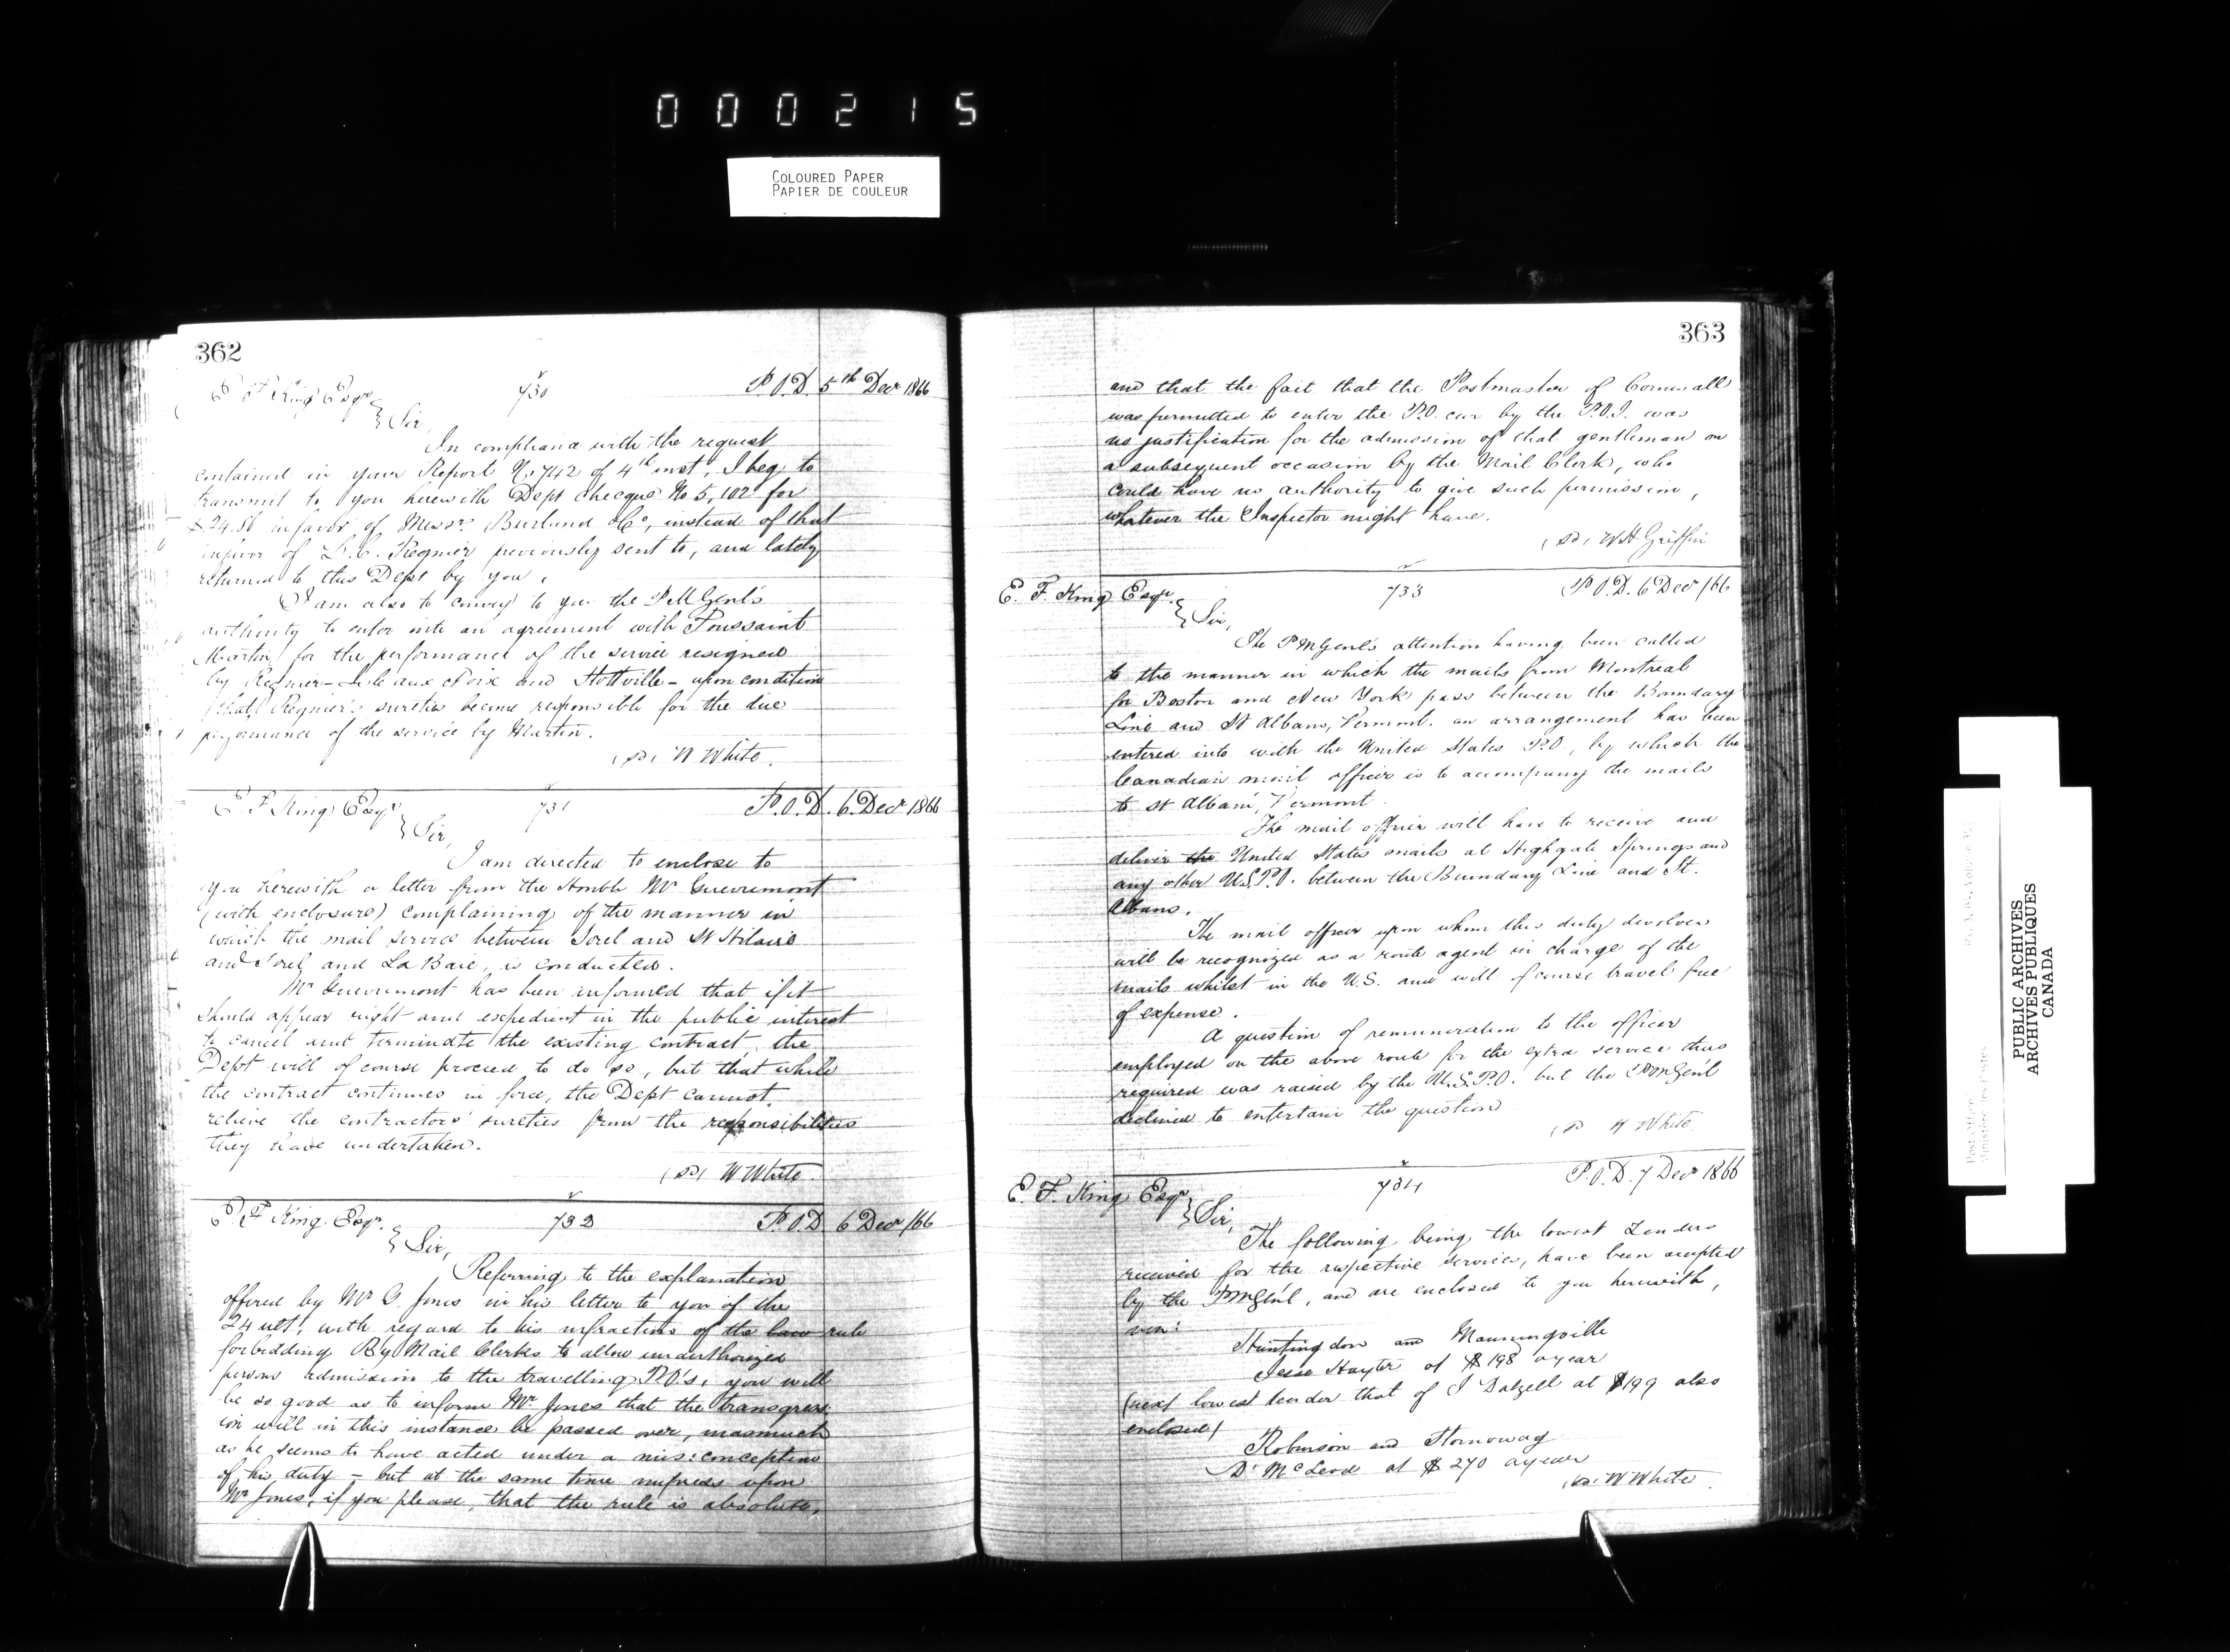 000215
COLOURED PAPER
PAPIER DE COULEUR
362
E F King Esqr 730 P.O.D. 5th Decr 1866
Sir,
In compliance with the request
contained in your Report No 742 of 4th inst, I beg to
transmit to you herewith Dept checque No 5,102 for
in favor of Messrs Burland & Co, instead of that
in favor of Regnier previously sent to, and lately
returned to this Dept by you,
I am also to convey to you the PMGenl's
authority to enter into an agreement with Toussaint
Martin for the performance of the service resigned
by Regnier - Isle aux Noix and Stottville - upon condition
that Regnier's sureties become responsible for the due
performance of the service by Martin.
(sd) W White.
E F King Esqr 731 P.O.D. 6 Decr 1866
Sir,
I am directed to enclose to
you herewith a letter from the Honble Mr Guevremont
(with enclosure) complaining of the manner in
which the mail service between Sorel and St Hilaire
and Sorel and La Baie, is conducted.
Mr Guevremont has been informed that if it
should appear right and expedient in the public interest
to cancel and terminate the existing contract, the
Dept will of course proceed to do so, but that while
the contract continues in force, the Dept cannot
relieve the contractors' sureties from the responsibilities
they have undertaken.
(sd) W White
E. F King Esqr. 732 P.O.D 6 Decr /66
Sir,
Referring to the explanation
offered by Mr G. Jones in his letter to you of the
24 ult, with regard to his infraction of the law rule
forbidding Ry Mail Clerks to allow unauthorized
persons admission to the travelling P.O's, you will
be so good as to inform Mr Jones that the transgress
ion will in this instance be passed over, inasmuch
as he seems to have acted under a mis:conception
of his duty - but at the same time impress upon
Mr Jones, if you please, that the rule is absolute,
363
and that the fact that the Postmaster of Cornwall
was permitted to enter the P.O. car by the P.O.I. was
no justification for the admission of that gentleman on
a subsequent occasion by the Mail Clerk, who
could have no authority to give such permission,
whatever the Inspector might have.
(sd) W H Griffin
E. F. King Esqr. 733 P.O.D. 6 Decr /66
Sir,
The PMGenl's attention having been called
to the manner in which the mails from Montreal
for Boston and New York pass between the Boundary
Line and St Albans, Vermont. an arrangement has been
entered into with the United States P.O., by which the
Canadian mail officer is to accompany the mails
to St Albans, Vermont.
The mail officer will have to receive and
deliver the United States mails at Highgate Springs and
any other U.S.P.O. between the Boundary Line and St.
Albans.
The mail officer upon whom this duty devolves
will be recognized as a route agent in charge of the
mails whilst in the U.S. and will of course travel free
of expense.
A question of remuneration to the officer
employed on the above route for the extra service thus
required was raised by the U.S.P.O. but the PMGenl
declined to entertain the question
(sd W White
E. F. King Esqr 734 P.O.D. 7 Decr 1866
Sir,
The following being the lowest Tenders
received for the respective services, have been accepted
by the PMGenl, and are enclosed to you herewith,
viz:
Huntingdon and Manningville
Jesse Hayter at $198 a year
(next lowest tender that of J Dalzell at $199 also
enclosed)
Robinson and Stornoway
D. McLeod at $270 a year
(sd) W White.
PUBLIC ARCHIVES
ARCHIVES PUBLIQUES
CANADA